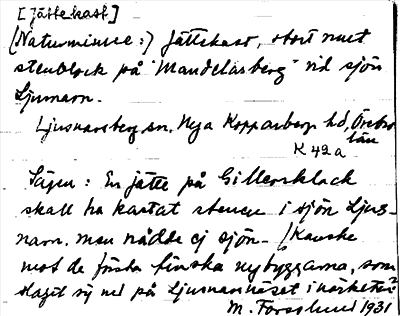 [Jättekast]
(Naturminne:) Jättekast, stort runt
stenblock på "Mandelåsberg" vid sjön
Ljusnarn.
Ljusnarsberg sn, Nya Kopparberg hd, Örebro
län
K 42 a
Sägen: En jätte på Gillersklack
skall ha kastat stenen i sjön Ljus-
narn, men nådde ej sjön. (Kanske
mot de första finska nybyggarna, som
slagit sig ned på Ljusnarnäset i närheten?
M. Forsslund 1931